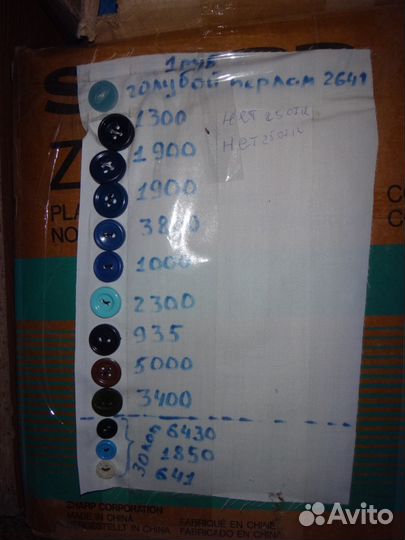 1 руб
голубой перлам 2641
1300 нет 250тк
1900 нет
1900
3800
1000
2300
935
5000
3400
30 коп
6430
1850
641
SHARP CORPORATION
MADE IN CHINA
HERGESTELLT IN CHINA
FABRIQUÉ EN CHINE
FABRICADO EN CHINA
Avito